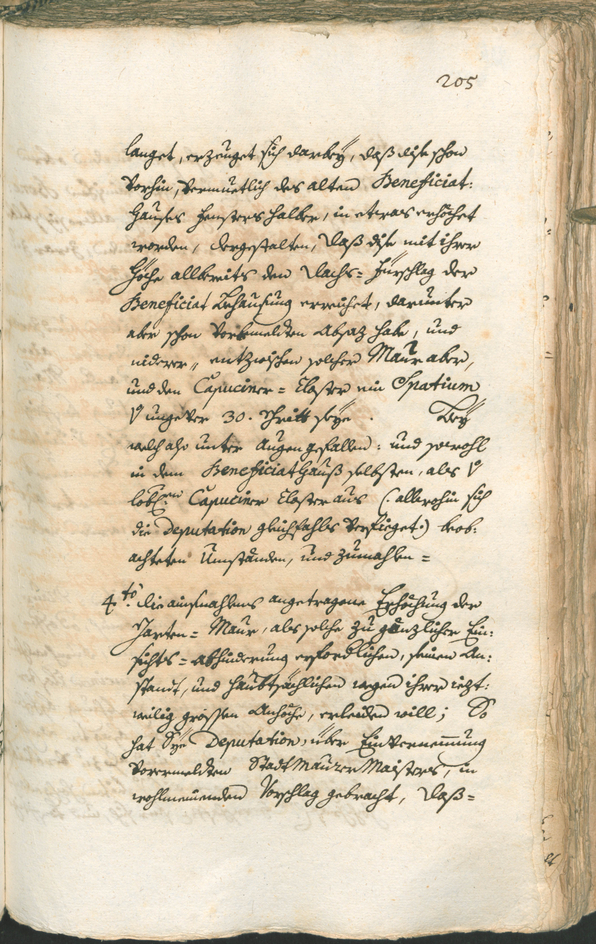 205
langet, erzeuget sich darbeÿ, daß dise schon
vorhin, vermuetlich des alten Beneficiat:
Hauses Fensters halber, in etwas erhöhet
worden, dergestalten, daß dise mit ihrer
Höche allbereits den Dachs= Fürschlag der
Beneficiat Behausung erreichet, darunter
aber schon vorbemeldten Absaz habe, und
niderer, entzwischen solcher Maur aber,
und den Capuciner= Closter ein Spatium
V ungever 30. Schritt seÿe. Beÿ
welch also unter Augen gefallen: und sowohl
in dem Beneficiat Hauß selbsten, als V
löbl:en Capuciner Closter aus (: allwohin sich
die Deputation gleichfahls verfüeget:) beob-
achteten Umständen, und zumahlen =
4to die einsmahlens angetragene Erhöchung der
Garten= Maur, als solche zu gänzlicher Ein:
sichts= abhinderung erforderlichen, seinen An:
standt, und haubtsächlichen wegen ihrer iezt:
weilig grossen Anhöche, erleiden will; So
hat Sye Deputation, über Einvernemmung
vorermeldten Stadt Maurer Maisters, in
wohlmeinenden Vorschlag gebracht, daß=